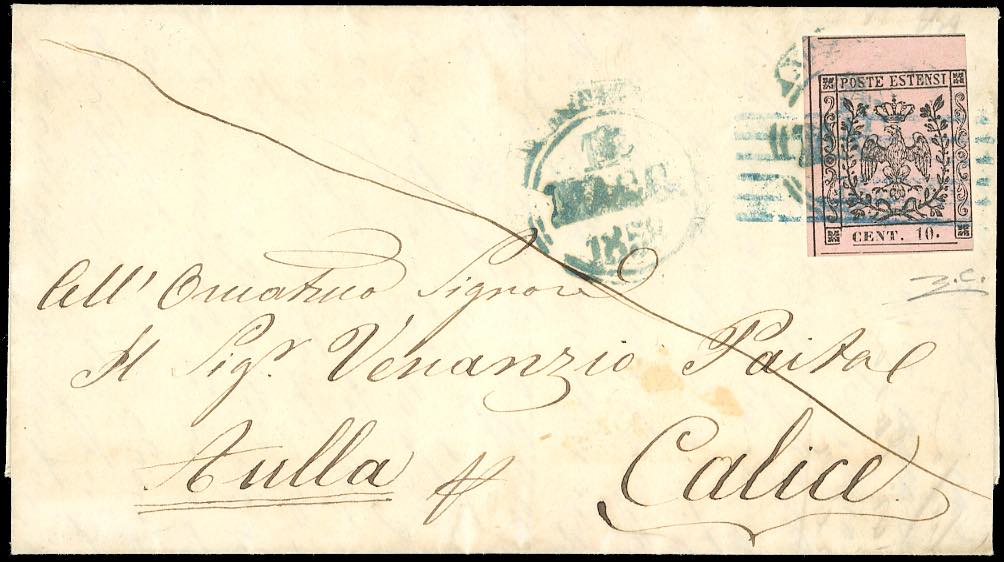 POSTE ESTENSI
CENT. 10.
All' Ornatmo Signore
Il Sigr. Venanzio Paita
Aulla
Calice
Z.C.